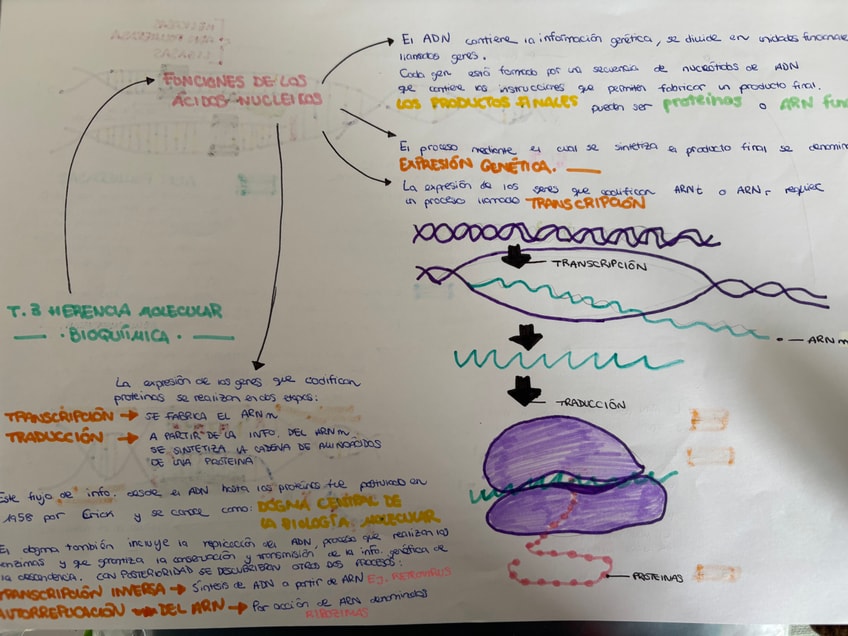 FUNCIONES DE LOS
ÁCIDOS NUCLEICOS
El ADN contiene la información genética, se divide en unidades
llamadas genes.
Cada gen está formado por una secuencia de nucleótidos de ADN
que contiene las instrucciones que permiten fabricar un producto final.
LOS PRODUCTOS FINALES pueden ser proteínas o ARN
El proceso mediante el cual se sintetiza el producto final se
EXPRESIÓN GENÉTICA.
La expresión de los genes que codifican ARNt o ARNr
un proceso llamado TRANSCRIPCIÓN
TRANSCRIPCIÓN
ARNm
TRADUCCIÓN
PROTEINAS
T. 3 HERENCIA MOLECULAR
· BIOQUÍMICA ·
La expresión de los genes que codifican
proteínas se realiza en dos etapas:
TRANSCRIPCIÓN → SE FABRICA EL ARNm
TRADUCCIÓN → A PARTIR DE LA INFO. DEL ARNm
SE SINTETIZA LA CADENA DE AMINOÁCIDOS
DE UNA PROTEINA
Este flujo de info. desde el ADN hasta las proteínas fue postulado en
1958 por Crick y se conoce como: DOGMA CENTRAL DE
LA BIOLOGÍA MOLECULAR
El dogma también incluye la replicación del ADN, proceso que realizan las
enzimas y que garantiza la conservación y transmisión de la info. genética de
la descendencia. CON POSTERIORIDAD SE DESCUBRIERON OTROS DOS PROCESOS:
TRANSCRIPCIÓN INVERSA → Síntesis de ADN a partir de ARN Ej. RETROVIRUS
AUTORREPLICACIÓN DEL ARN → Por acción de ARNs denominados
RIBOZIMAS